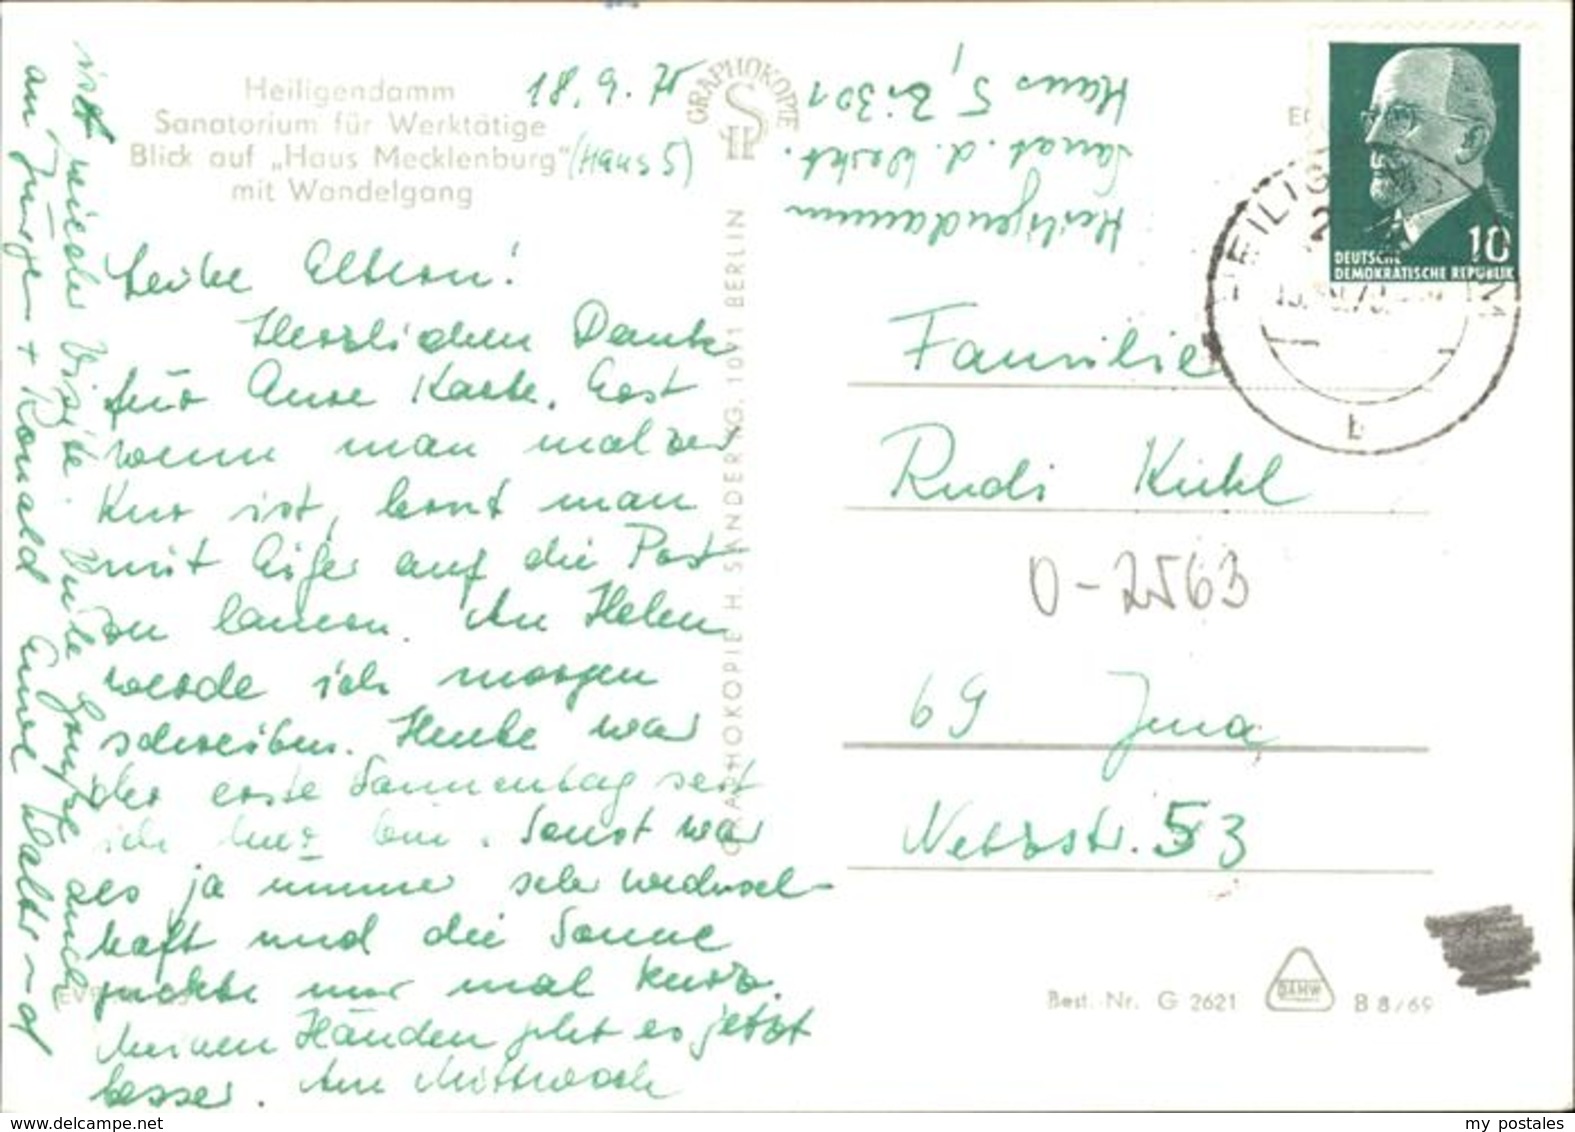 Heiligendamm
Sanatorium für Werktätige
Blick auf „Haus Mecklenburg" (Haus 5)
mit Wandelgang
18. 6. 70
Liebe Eltern!
Herzlichen Dank
für Eure Karte. Erst
wenn man mal zur
Kur ist, lernt man
mit Eifer auf die Post
zu lauern. An Helen
werde ich morgen
schreiben. Heute war
der erste Sonnentag seit
ich hier bin. Sonst war
es ja immer sehr wechsel-
haft und die Sonne
guckte nur mal kurz.
Meinen Händen geht es jetzt
besser. Am Mittwoch
ist wieder Visite. Viele Grüße auch
an Jürgen + Romald Eure
GRAPHOKOPIE
GRAPHOKOPIE H. SANDER KG, 1071 BERLIN
Heiligendamm
Sanat. d. Werkt.
Haus 5, Zi. 301
DEUTSCHE
DEMOKRATISCHE REPUBLIK
10
b
Familie
Rudi Kühl
O-2563
69 Jena
Netzstr. 53
Best.-Nr. G 2621
DAMW
B 8/69
www.delcampe.net
my postales